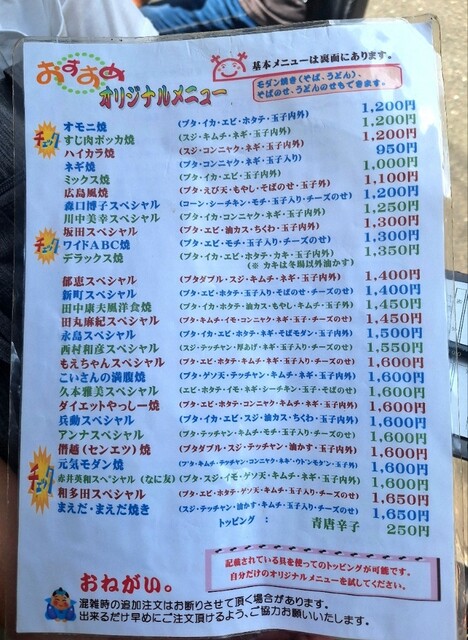 おすすめ
オリジナルメニュー
基本メニューは裏面にあります。
モダン焼き(そば、うどん)、
そばのせ、うどんのせもできます。
オモニ焼 (ブタ・イカ・エビ・ホタテ・玉子内外) 1,200円
チェック
すじ肉ポッカ焼 (スジ・キムチ・ネギ・玉子内外) 1,200円
ハイカラ焼 (スジ・コンニャク・ネギ・玉子内外) 1,200円
ネギ焼 (ブタ・コンニャク・ネギ・玉子入り) 950円
ミックス焼 (ブタ・イカ・エビ・玉子内外) 1,000円
広島風焼 (ブタ・えび天・もやし・そばのせ・玉子外) 1,100円
森口博子スペシャル (コーン・シーチキン・モチ・玉子入り・チーズのせ) 1,200円
川中美幸スペシャル (ブタ・イカ・コンニャク・ネギ・玉子内外) 1,250円
坂田スペシャル (ブタ・エビ・油カス・ちくわ・玉子内外) 1,300円
チェック
ワイドABC焼 (ブタ・エビ・モチ・玉子入り・チーズのせ) 1,300円
デラックス焼 (ブタ・イカ・エビ・ホタテ・カキ・玉子内外) 1,350円
(※ カキは冬場以外油かす)
郁恵スペシャル (ブタダブル・スジ・キムチ・ネギ・玉子内外) 1,400円
新町スペシャル (ブタ・エビ・ホタテ・玉子入り・そばのせ・チーズのせ) 1,400円
田中康夫風洋食焼 (ブタ・イカ・ホタテ・油カス・もやし・キムチ・玉子外) 1,450円
田丸麻紀スペシャル (ブタ・キムチ・イモ・コンニャク・ネギ・玉子内外・チーズのせ) 1,450円
永島スペシャル (ブタ・イカ・エビ・ホタテ・ネギ・そばモダン・玉子内外) 1,500円
西村和彦スペシャル (スジ・テッチャン・厚あげ・ネギ・玉子入り・チーズのせ) 1,550円
もえちゃんスペシャル (ブタ・エビ・ホタテ・キムチ・ネギ・玉子入り・チーズのせ) 1,600円
こいさんの満腹焼 (ブタ・ゲソ天・テッチャン・キムチ・ネギ・玉子内外) 1,600円
久本雅美スペシャル (エビ・ホタテ・イモ・ネギ・シーチキン・玉子・そばのせ) 1,600円
ダイエットやっしー焼 (ブタ・エビ・ホタテ・キムチ・モチ・ネギ・玉子内外) 1,600円
兵動スペシャル (ブタ・イカ・エビ・スジ・油カス・ちくわ・玉子内外) 1,600円
アンナスペシャル (ブタ・テッチャン・キムチ・モチ・ネギ・玉子・チーズのせ) 1,600円
僭越(センエツ)焼 (ブタダブル・スジ・テッチャン・油かす・玉子内外) 1,600円
チェック
元気モダン焼 (ブタ・キムチ・テッチャン・コンニャク・ネギ・ウドンモダン・玉子外) 1,600円
赤井英和スペシャル(なに友) (ブタ・スジ・イモ・ゲソ天・キムチ・ネギ・玉子内外) 1,600円
和多田スペシャル (ブタ・エビ・ホタテ・ゲソ天・キムチ・モチ・玉子内外) 1,650円
まえだ・まえだ焼き (スジ・テッチャン・油かす・キムチ・モチ・玉子入り・チーズのせ) 1,650円
トッピング : 青唐辛子 250円
記載されている具を使ってのトッピングが可能です。
自分だけのオリジナルメニューを試してください。
おねがい。
混雑時の追加注文はお断りさせて頂く場合があります。
出来るだけ早めにご注文頂けるよう、ご協力お願いいたします。